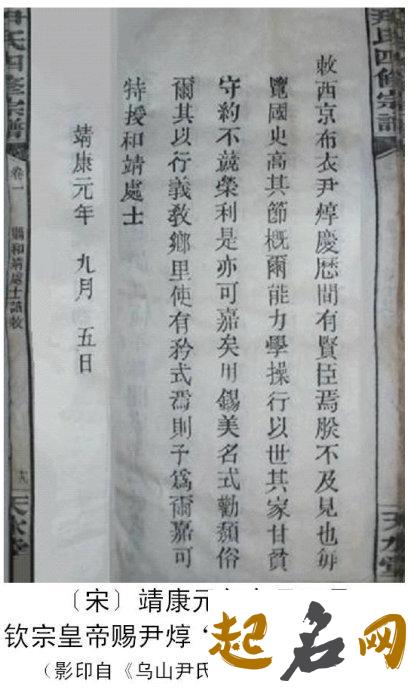 尹氏四修宗譜
敕西京布衣尹焞慶歷間有賢臣焉朕不及見也每
覽國史高其節概爾能力學操行以世其家甘貧
守約不兢榮利是亦可嘉矣用錫美名式勸頹俗
爾其以行義教鄉里使有矜式焉則予為爾嘉可
特授和靖處士
靖康元年 九月 五日
尹氏四修宗譜
卷一
賜和靖處士誥敕
天水堂
〔宋〕靖康元
钦宗皇帝赐尹焞
（影印自《乌山尹氏
起名网